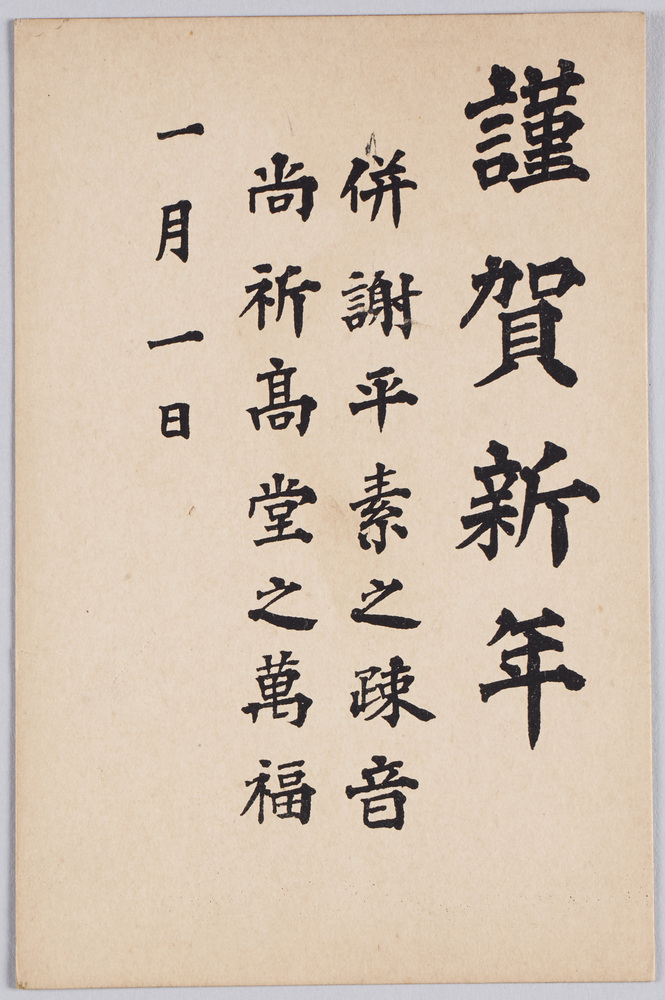 謹賀新年
併謝平素之疎音
尚祈髙堂之萬福
一月一日